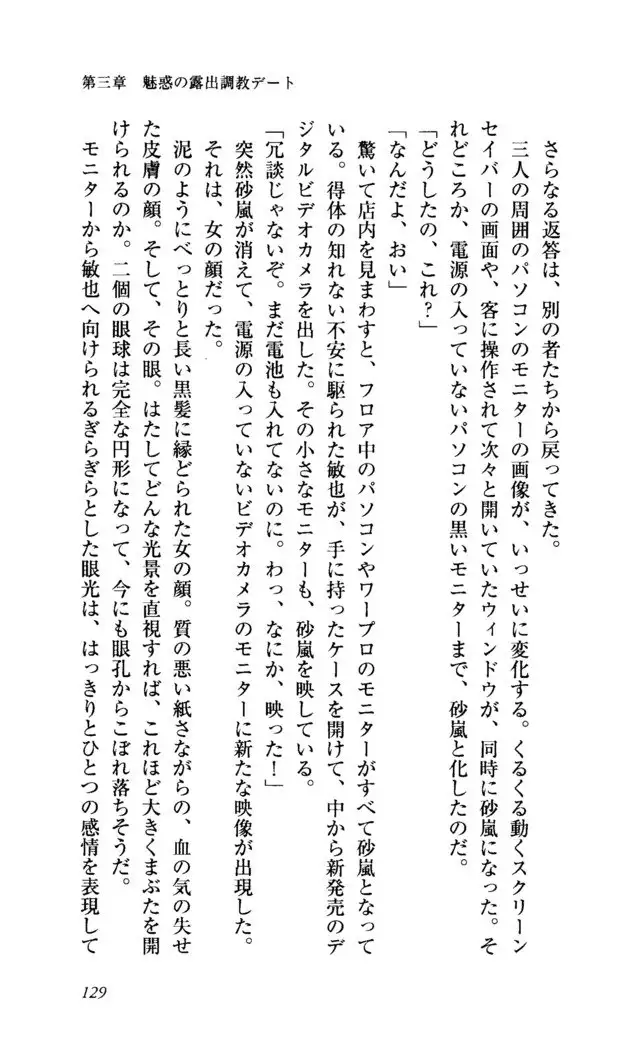 第三章　魅惑の露出調教デート
さらなる返答は、別の者たちから戻ってきた。
三人の周囲のパソコンのモニターの画像が、いっせいに変化する。くるくる動くスクリーン
セイバーの画面や、客に操作されて次々と開いていたウィンドウが、同時に砂嵐になった。そ
れどころか、電源の入っていないパソコンの黒いモニターまで、砂嵐と化したのだ。
「どうしたの、これ？」
「なんだよ、おい」
驚いて店内を見まわすと、フロア中のパソコンやワープロのモニターがすべて砂嵐となって
いる。得体の知れない不安に駆られた敏也が、手に持ったケースを開けて、中から新発売のデ
ジタルビデオカメラを出した。その小さなモニターも、砂嵐を映している。
「冗談じゃないぞ。まだ電池も入れてないのに。わっ、なにか、映った！」
突然砂嵐が消えて、電源の入っていないビデオカメラのモニターに新たな映像が出現した。
それは、女の顔だった。
泥のようにべっとりと長い黒髪に縁どられた女の顔。質の悪い紙さながらの、血の気の失せ
た皮膚の顔。そして、その眼。はたしてどんな光景を直視すれば、これほど大きくまぶたを開
けられるのか。二個の眼球は完全な円形になって、今にも眼孔からこぼれ落ちそうだ。
モニターから敏也へ向けられるぎらぎらとした眼光は、はっきりとひとつの感情を表現して
129